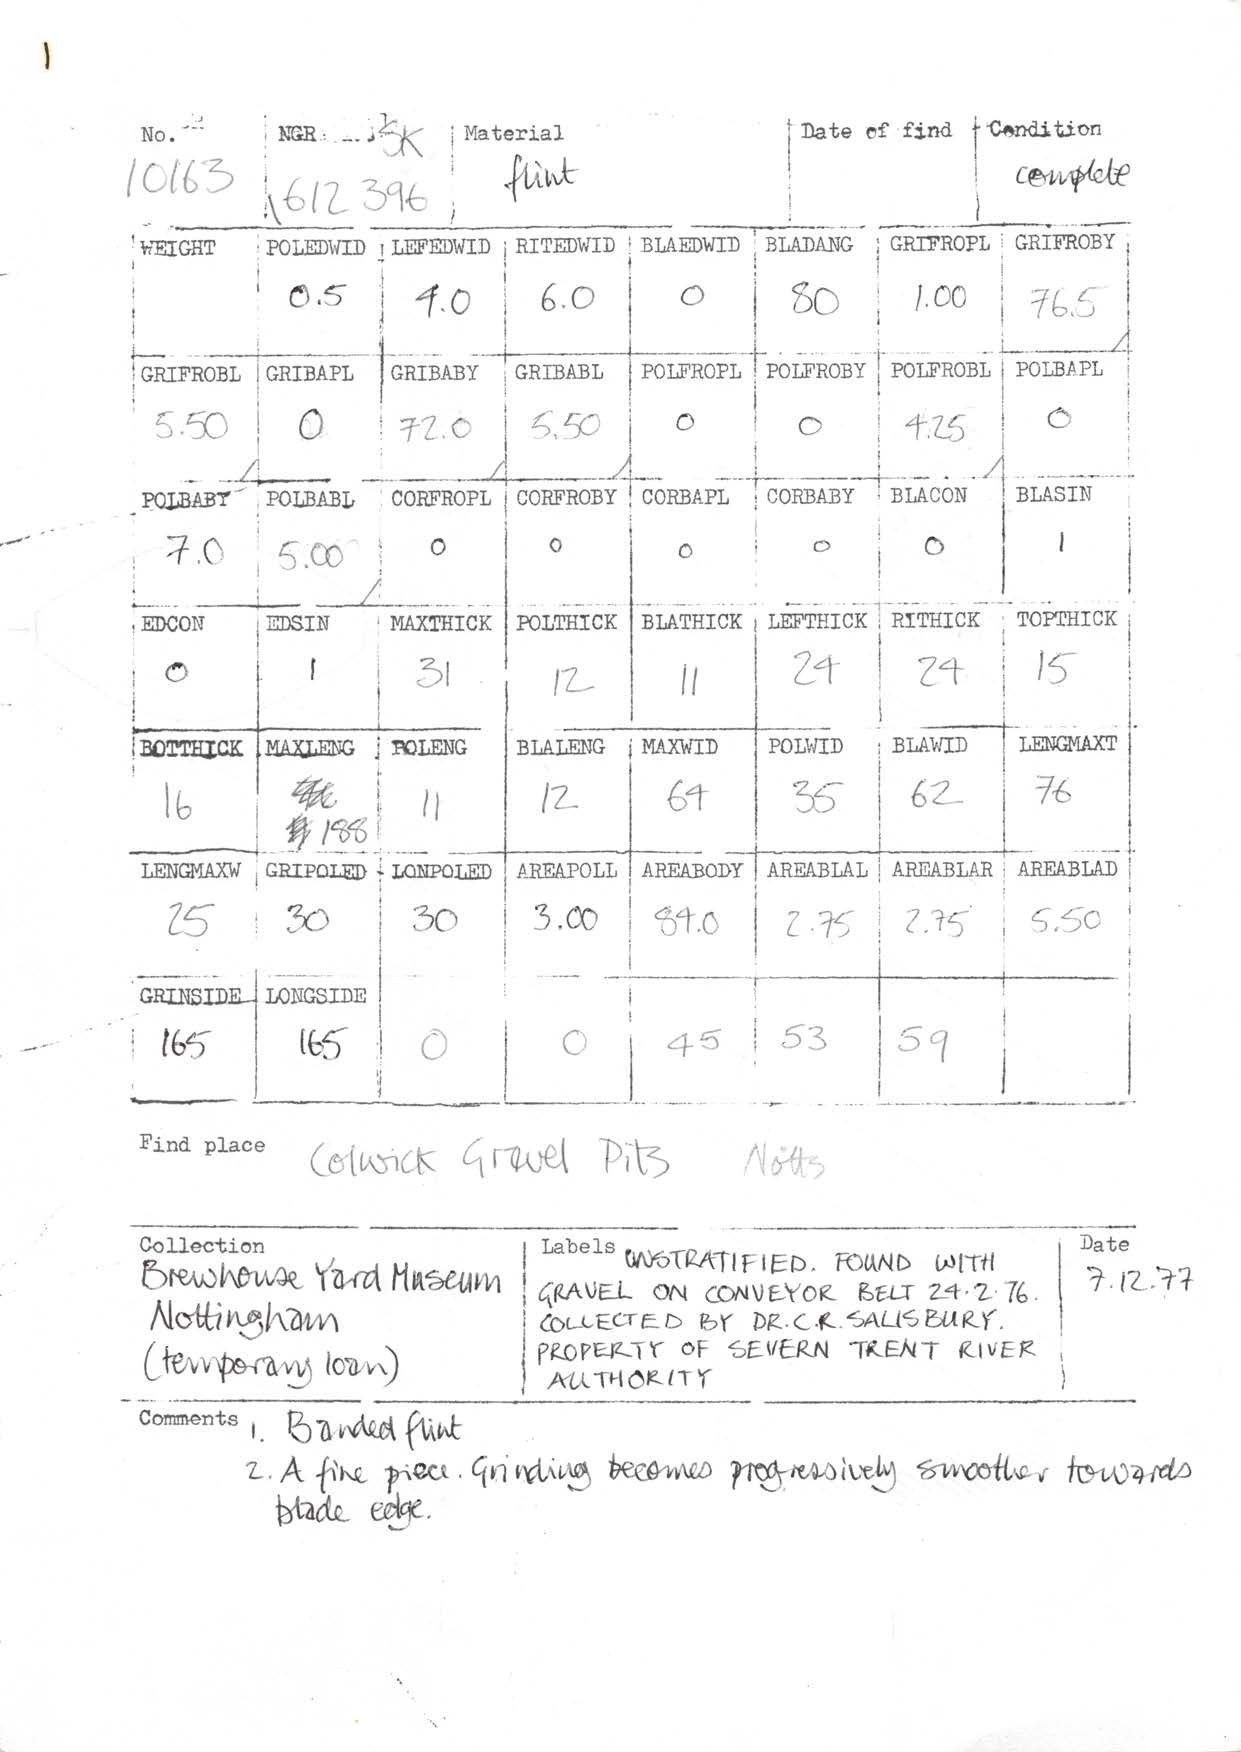 1
No. NGR SK Material Date of find Condition
10163 612 396 flint complete
WEIGHT POLEDWID LEFEDWID RITEDWID BLAEDWID BLADANG GRIFROPL GRIFROBY
0.5 4.0 6.0 0 80 1.00 76.5
GRIFROBL GRIBAPL GRIBABY GRIBABL POLFROPL POLFROBY POLFROBL POLBAPL
5.50 0 72.0 5.50 0 0 4.25 0
POLBABY POLBABL CORFROPL CORFROBY CORBAPL CORBABY BLACON BLASIN
7.0 5.00 0 0 0 0 0 1
EDCON EDSIN MAXTHICK POLTHICK BLATHICK LEFTHICK RITHICK TOPTHICK
0 1 31 12 11 24 24 15
BOTTHICK MAXLENG POLENG BLALENG MAXWID POLWID BLAWID LENGMAXT
16 188 11 12 64 35 62 76
LENGMAXW GRIPOLED LONPOLED AREAPOLL AREABODY AREABLAL AREABLAR AREABLAD
25 30 30 3.00 84.0 2.75 2.75 5.50
GRINSIDE LONGSIDE
165 165 0 0 45 53 59
Find place Colwick Gravel Pits Notts
Collection
Brewhouse Yard Museum
Nottingham
(temporary loan)
Labels UNSTRATIFIED. FOUND WITH
GRAVEL ON CONVEYOR BELT 24.2.76.
COLLECTED BY DR.C.R.SALISBURY.
PROPERTY OF SEVERN TRENT RIVER
AUTHORITY
Date
7.12.77
Comments 1. Banded flint
2. A fine piece. Grinding becomes progressively smoother towards
blade edge.